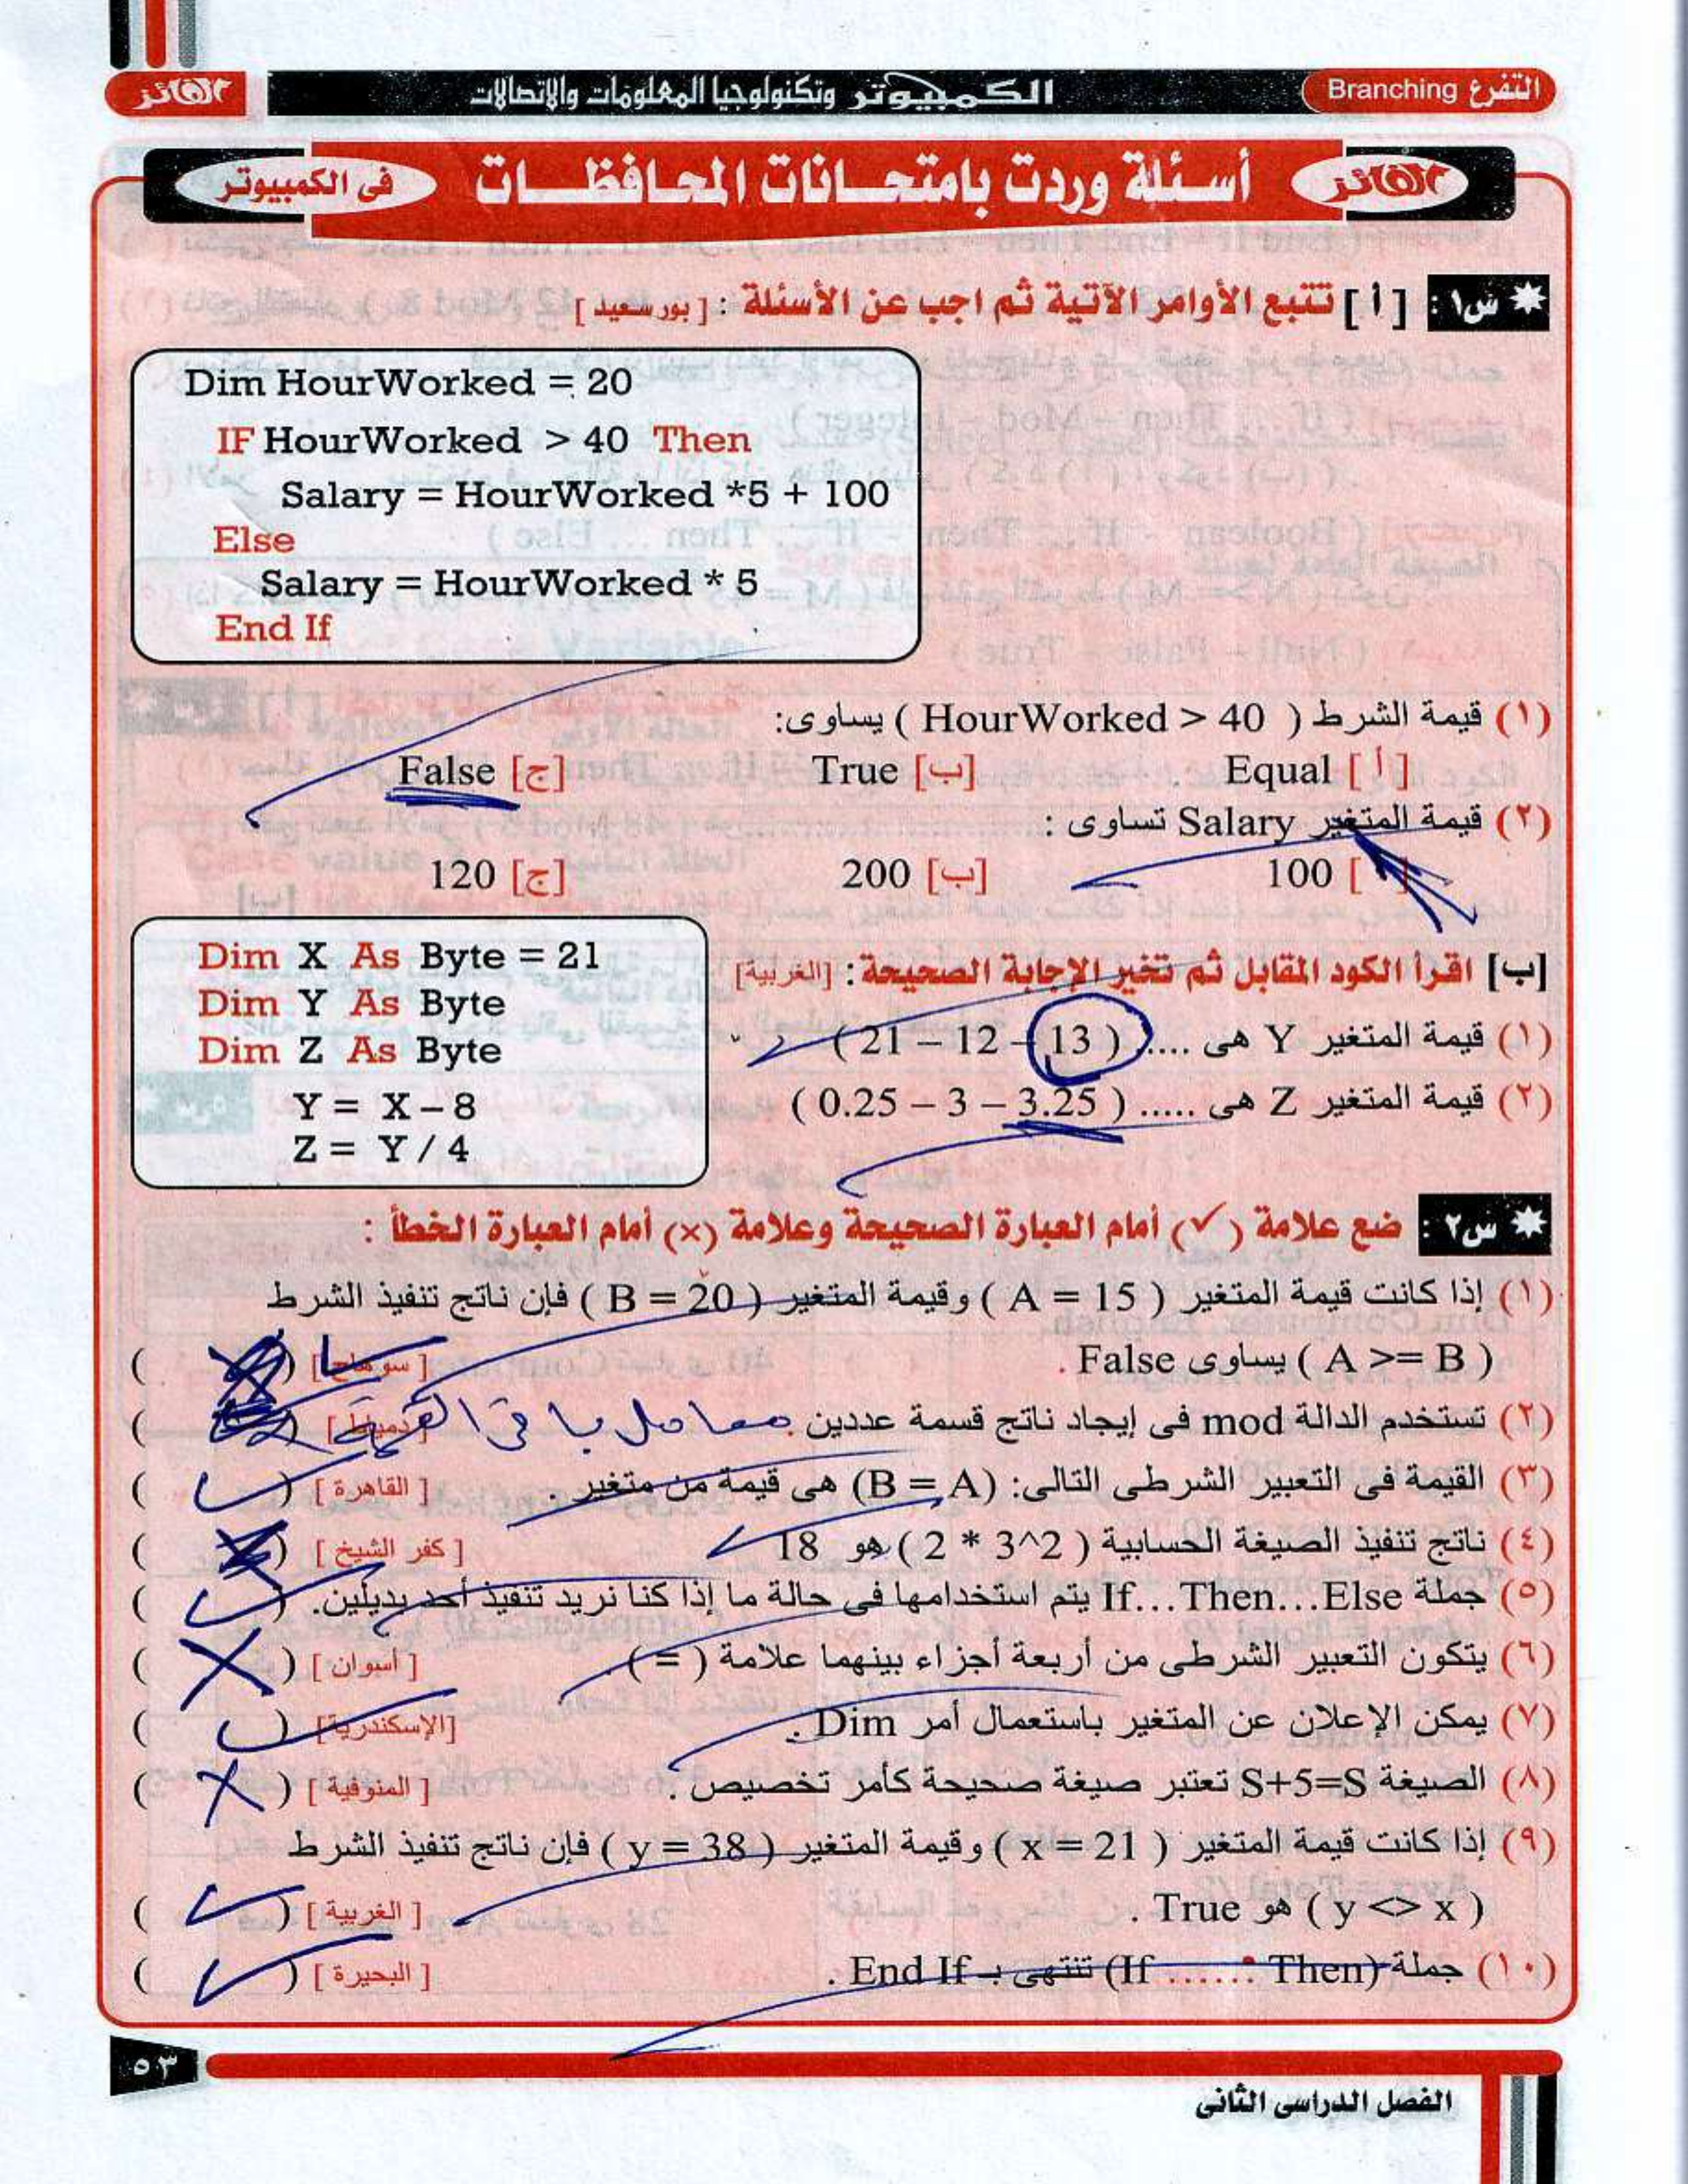 التفرع Branching
الكمبيوتر وتكنولوجيا المعلومات والاتصالات
الفائز
الفائز
أسئلة وردت بامتحانات المحافظات
فى الكمبيوتر
س١ : [ أ ] تتبع الأوامر الآتية ثم اجب عن الأسئلة : [ بور سعيد ]
Dim HourWorked = 20
IF HourWorked > 40 Then
Salary = HourWorked *5 + 100
Else
Salary = HourWorked * 5
End If
(١) قيمة الشرط ( HourWorked > 40 ) يساوى:
[ أ ] Equal [ب] True [ج] False
(٢) قيمة المتغير Salary تساوى :
[ ] 100 [ب] 200 [ج] 120
[ب] اقرأ الكود المقابل ثم تخير الإجابة الصحيحة : [الغربية]
Dim X As Byte = 21
Dim Y As Byte
Dim Z As Byte
Y = X – 8
Z = Y / 4
(١) قيمة المتغير Y هى ..... ( 13 – 12 – 21 )
(٢) قيمة المتغير Z هى ..... ( 3.25 – 3 – 0.25 )
س٢ : ضع علامة (✓) أمام العبارة الصحيحة وعلامة (×) أمام العبارة الخطأ :
(١) إذا كانت قيمة المتغير ( A = 15 ) وقيمة المتغير ( B = 20 ) فإن ناتج تنفيذ الشرط
( A >= B ) يساوى False . [ سوهاج ] ( )
(٢) تستخدم الدالة mod فى إيجاد ناتج قسمة عددين . معامل باقى القسمة [ دمياط ] ( )
(٣) القيمة فى التعبير الشرطى التالى: (B = A) هى قيمة من متغير . [ القاهرة ] ( ✓ )
(٤) ناتج تنفيذ الصيغة الحسابية ( 2 * 3^2 ) هو 18 [ كفر الشيخ ] ( )
(٥) جملة If…Then…Else يتم استخدامها فى حالة ما إذا كنا نريد تنفيذ أحد بديلين. ( ✓ )
(٦) يتكون التعبير الشرطى من أربعة أجزاء بينهما علامة ( = ) . [ أسوان ] ( × )
(٧) يمكن الإعلان عن المتغير باستعمال أمر Dim . [الإسكندرية] ( ✓ )
(٨) الصيغة S+5=S تعتبر صيغة صحيحة كأمر تخصيص . [ المنوفية ] ( × )
(٩) إذا كانت قيمة المتغير ( x = 21 ) وقيمة المتغير ( y = 38 ) فإن ناتج تنفيذ الشرط
( y <> x ) هو True . [ الغربية ] ( ✓ )
(١٠) جملة (If ...... Then) تنتهى بـ End If . [ البحيرة ] ( ✓ )
٥٣
الفصل الدراسى الثانى